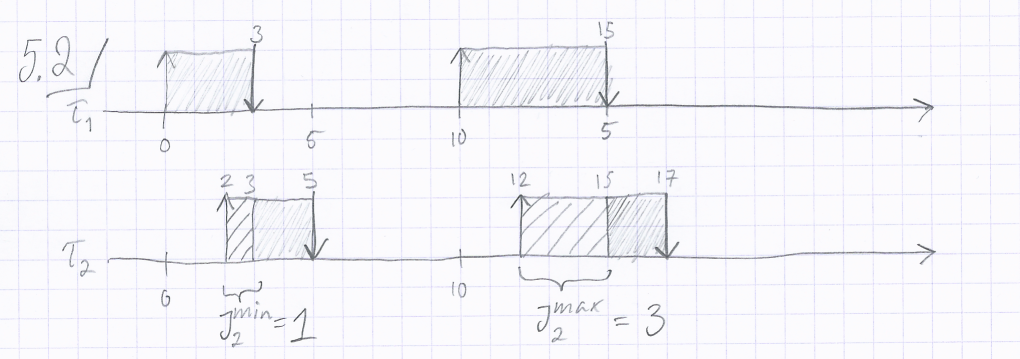 5.2/
3 15
τ₁
0 5 10 5
2 3 5 12 15 17
τ₂
0 10
J₂ᵐⁱⁿ = 1 J₂ᵐᵃˣ = 3